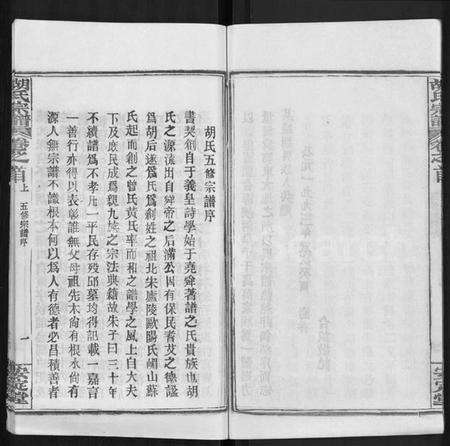 胡氏宗譜卷之首
胡氏五修宗譜序
書契創自于羲皇詩學始于堯舜著譜之氏貴族也胡
氏之源流出自舜帝之后滿公因有保民者艾之德諡
為胡后遂爲氏爲創姓之祖北宋廬陵歐陽氏嵋山蘇
氏起而創之曾氏黄氏率而和之譜學之風上自大夫
下及庶民成爲親九族之宗法典籍故朱子曰三十年
不續譜爲不孝凡一平民存殁邱墓均得記載一嘉言
一善行亦得以表彰誰無父母祖先木尚有根水尚有
源人無宗譜不識根本何以爲人有德者必昌積善者
胡氏宗譜卷之首
上
五修宗譜序
一
安定堂
安定堂